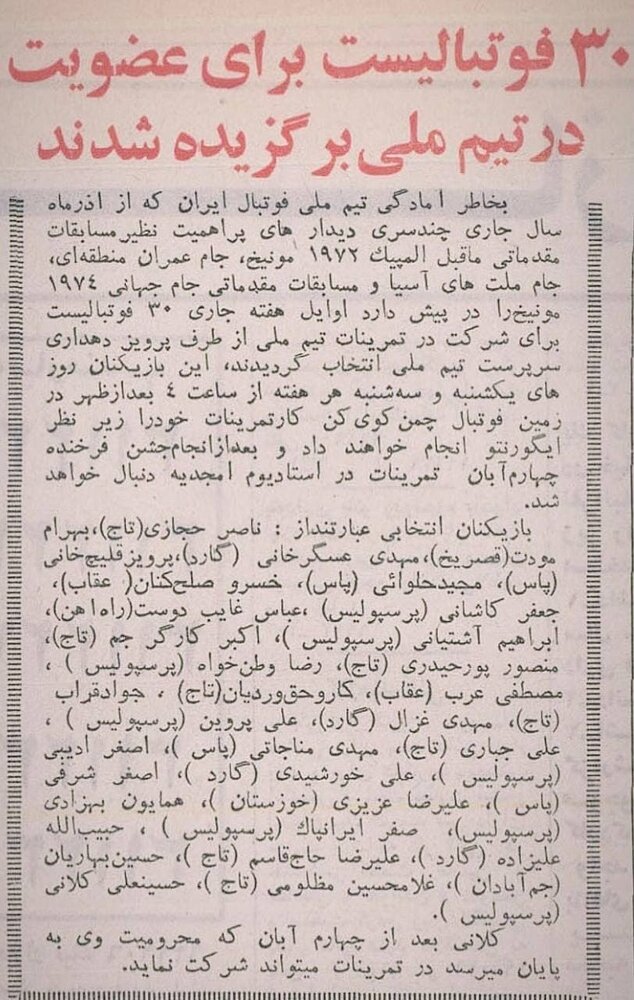 ۳۰ فوتبالیست برای عضویت
در تیم ملی برگزیده شدند
بخاطر آمادگی تیم ملی فوتبال ایران که از آذرماه
سال جاری چندسری دیدار های پراهمیت نظیرمسابقات
مقدماتی ماقبل المپیك ۱۹۷۲ مونیخ، جام عمران منطقه‌ای،
جام ملت های آسیا و مسابقات مقدماتی جام جهانی ۱۹۷٤
مونیخ‌را در پیش دارد اوایل هفته جاری ۳۰ فوتبالیست
برای شرکت در تمرینات تیم ملی از طرف پرویز دهداری
سرپرست تیم ملی انتخاب گردیدند، این بازیکنان روز
های یکشنبه و سه‌شنبه هر هفته از ساعت ٤ بعدازظهر در
زمین فوتبال چمن کوی کن کارتمرینات خودرا زیر نظر
ایگورنتو انجام خواهند داد و بعدازانجام‌جشن فرخنده
چهارم‌آبان تمرینات در استادیوم امجدیه دنبال خواهد
شد.
بازیکنان انتخابی عبارتنداز : ناصر حجازی(تاج)،بهرام
مودت(قصریخ)،مهدی عسگرخانی (گارد)،پرویزقلیچ‌خانی
(پاس)، مجیدحلوائی (پاس)، خسرو صلح‌کنان( عقاب)،
جعفر کاشانی (پرسپولیس) ،عباس غایب دوست(راه‌اهن)،
ابراهیم آشتیانی (پرسپولیس )، اکبر کارگر جم (تاج)،
منصور پورحیدری (تاج)، رضا وطن‌خواه (پرسپولیس ) ،
مصطفی عرب (عقاب)، کاروحق‌وردیان(تاج) ، جوادقراب
(تاج)، مهدی غزال (گارد)، علی پروین (پرسپولیس ) ،
علی جباری (تاج)، مهدی مناجاتی (پاس )، اصغر ادیبی
(پرسپولیس )، علی خورشیدی (گارد )، اصغر شرفی
(پاس )، علیرضا عزیزی (خوزستان )، همایون بهزادی
(پرسپولیس)، صفر ایرانپاك (پرسپولیس ) ، حبیب‌الله
علیزاده (گارد )، علیرضا حاج‌قاسم (تاج )، حسین‌بهاریان
(جم‌آبادان )، غلامحسین مظلومی (تاج )، حسینعلی کلانی
(پرسپولیس ).
کلانی بعد از چهارم آبان که محرومیت وی به
پایان میرسد در تمرینات میتواند شرکت نماید.